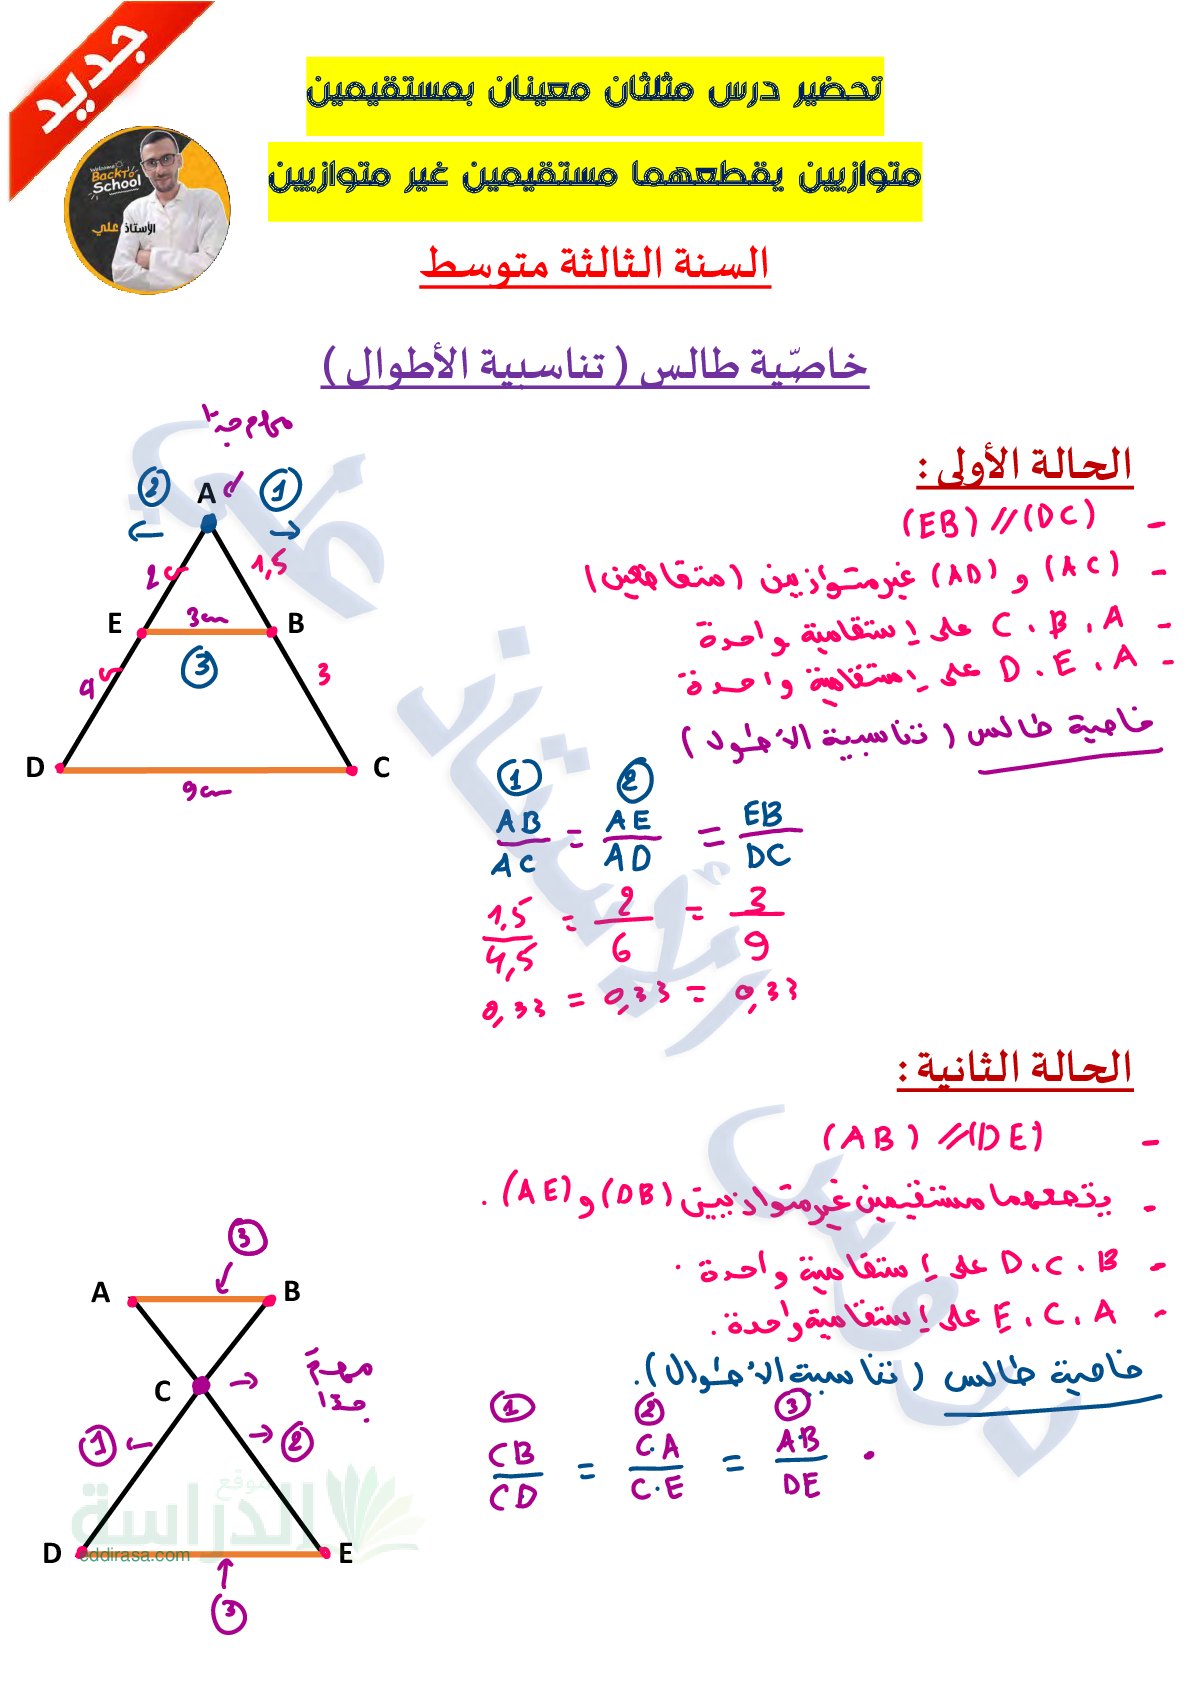 جديد
Welcome
BACK TO
School
الأستاذ علي
تحضير درس مثلثان معينان بمستقيمين
متوازيين يقطعهما مستقيمين غير متوازيين
السنة الثالثة متوسط
خاصّية طالس ( تناسبية الأطوال )
الحالة الأولى :
- (EB) // (DC)
- (AC) و (AD) غير متوازيين (متقاطعين)
- C، B، A على إستقامية واحدة
- D، E، A على إستقامية واحدة
خاصية طالس ( تناسبية الأطوال )
① ② 
AB/AC = AE/AD = EB/DC
1,5/4,5 = 2/6 = 3/9
0,33 = 0,33 = 0,33
مهم جدا
② A ①
2 1,5
E 3cm B
③
4 3
D C
9cm
الحالة الثانية :
- (AB) // (DE)
- يقطعهما مستقيمين غير متوازيين (DB) و (AE).
- D، C، B على إستقامية واحدة.
- E، C، A على إستقامية واحدة.
خاصية طالس ( تناسبية الأطوال ).
① ② ③
CB/CD = C.A/C.E = A.B/DE .
③
A B
C
مهم
جدا
① ②
D E
③
موقع
الدراسة
eddirasa.com